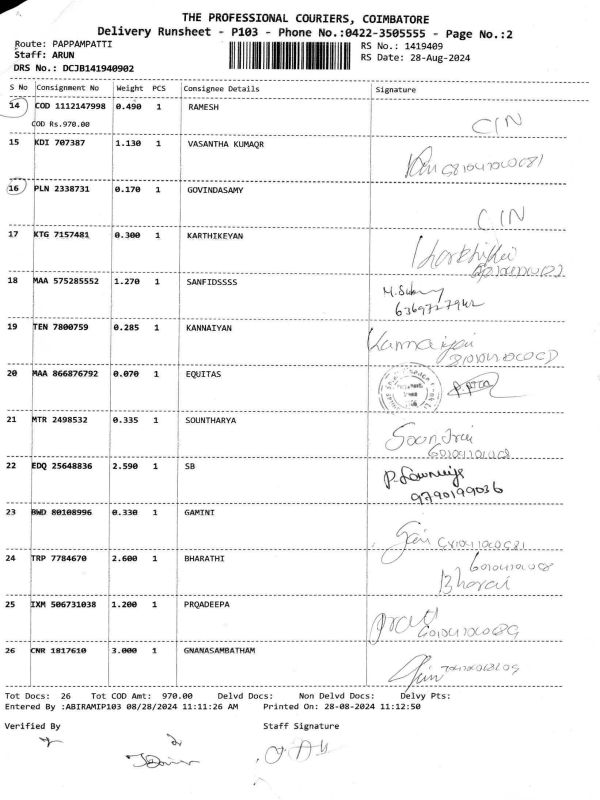 THE PROFESSIONAL COURIERS, COIMBATORE
Delivery Runsheet - P103 - Phone No.:0422-3505555 - Page No.:2
Route: PAPPAMPATTI
Staff: ARUN
DRS No.: DCJB141940902
RS No.: 1419409
RS Date: 28-Aug-2024
S No Consignment No Weight PCS Consignee Details Signature
14 COD 1112147998 0.490 1 RAMESH
COD Rs.970.00
CIN
15 KDI 707387 1.130 1 VASANTHA KUMAQR
16 PLN 2338731 0.170 1 GOVINDASAMY
CIN
17 KTG 7157481 0.300 1 KARTHIKEYAN
18 MAA 575285552 1.270 1 SANFIDSSSS
6369727942
19 TEN 7800759 0.285 1 KANNAIYAN
Kannaiyan
20 MAA 866876792 0.070 1 EQUITAS
21 MTR 2498532 0.335 1 SOUNTHARYA
22 EDQ 25648836 2.590 1 SB
9790199036
23 BWD 80108996 0.330 1 GAMINI
24 TRP 7784670 2.600 1 BHARATHI
25 IXM 506731038 1.200 1 PRQADEEPA
26 CNR 1817610 3.000 1 GNANASAMBATHAM
Tot Docs: 26 Tot COD Amt: 970.00 Delvd Docs: Non Delvd Docs: Delvy Pts:
Entered By :ABIRAMIP103 08/28/2024 11:11:26 AM Printed On: 28-08-2024 11:12:50
Verified By Staff Signature